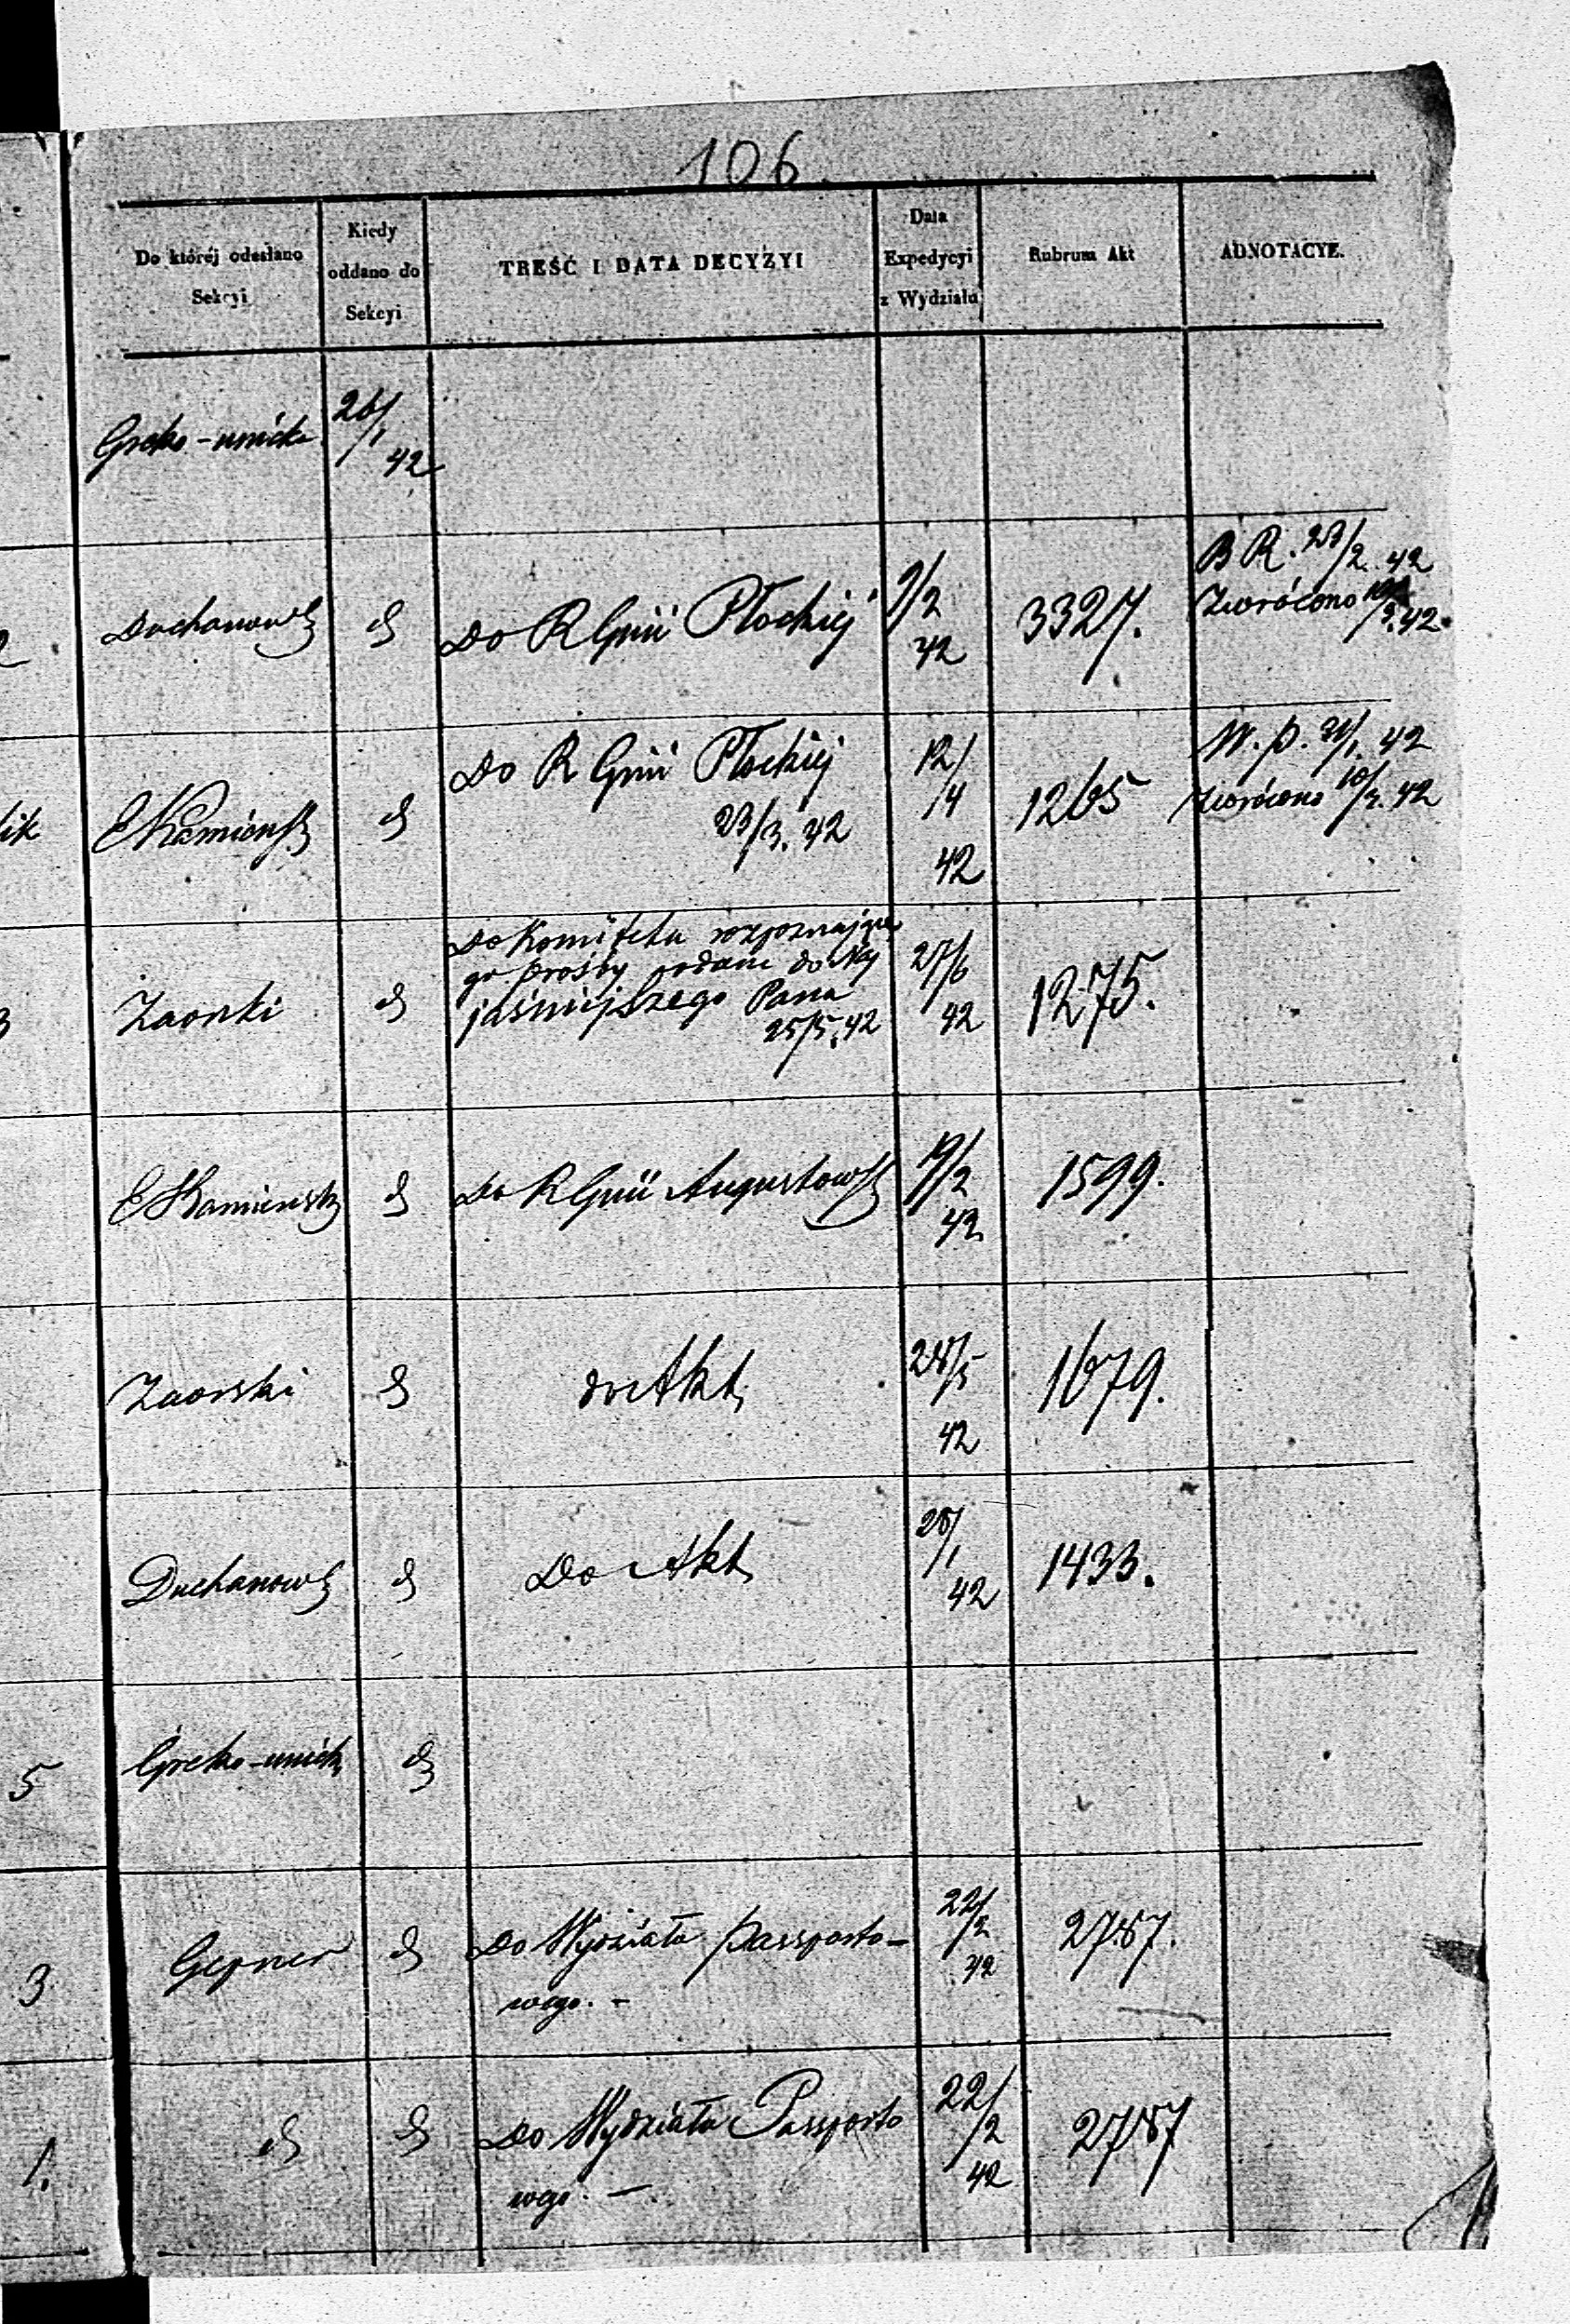 106
Do której odesłano
Sekcyi
Kiedy
oddano do
Sekcyi
TREŚĆ I DATA DECYZYI
Data
Expedycyi
z Wydziału
Rubrum Akt
ADNOTACYE.
Greko-unicka
26/1 42
2
Duchanows
d
Do R Gnii Płockiej
9/2 42
3327.
B R. 27/2 42
Zwrócono /3.42
lik
E Kamieńs
d
Do R Gnii Płockiej
23/3. 42
12/4 42
1265
W. p. 31/1 42
Zwrócono 10/3. 42
3
Zaorski
d
Do Komitetu rozpoznające
go prośby podane do Naj
jaśniejszego Pana
25/5.42
27/6 42
1275.
E Kamiensk
d
Do R Gnii Augustows
19/2 42
1599.
Zaorski
d
do Akt
28/5 42
1679.
Duchanows
d
Do Akt
28/1 42
1433.
5
Greko-unick
d
3
Gepner
d
Do Wydziału Passporto-
wego. -
22/2 42
2787.
1.
d
d
Do Wydziału Passporto
wego. -
22/2 42
2787